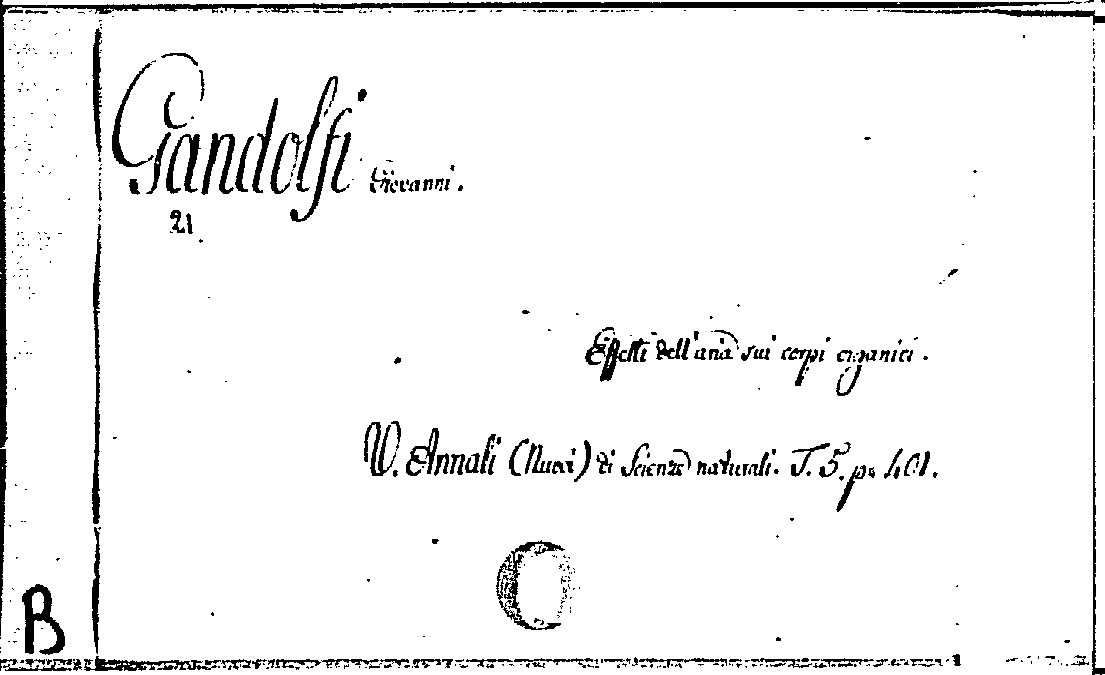 Gandolfi Giovanni.
21
Effetti dell'aria sui corpi organici.
V. Annali (Nuovi) di Scienze naturali. T. 5. p. 401.
B